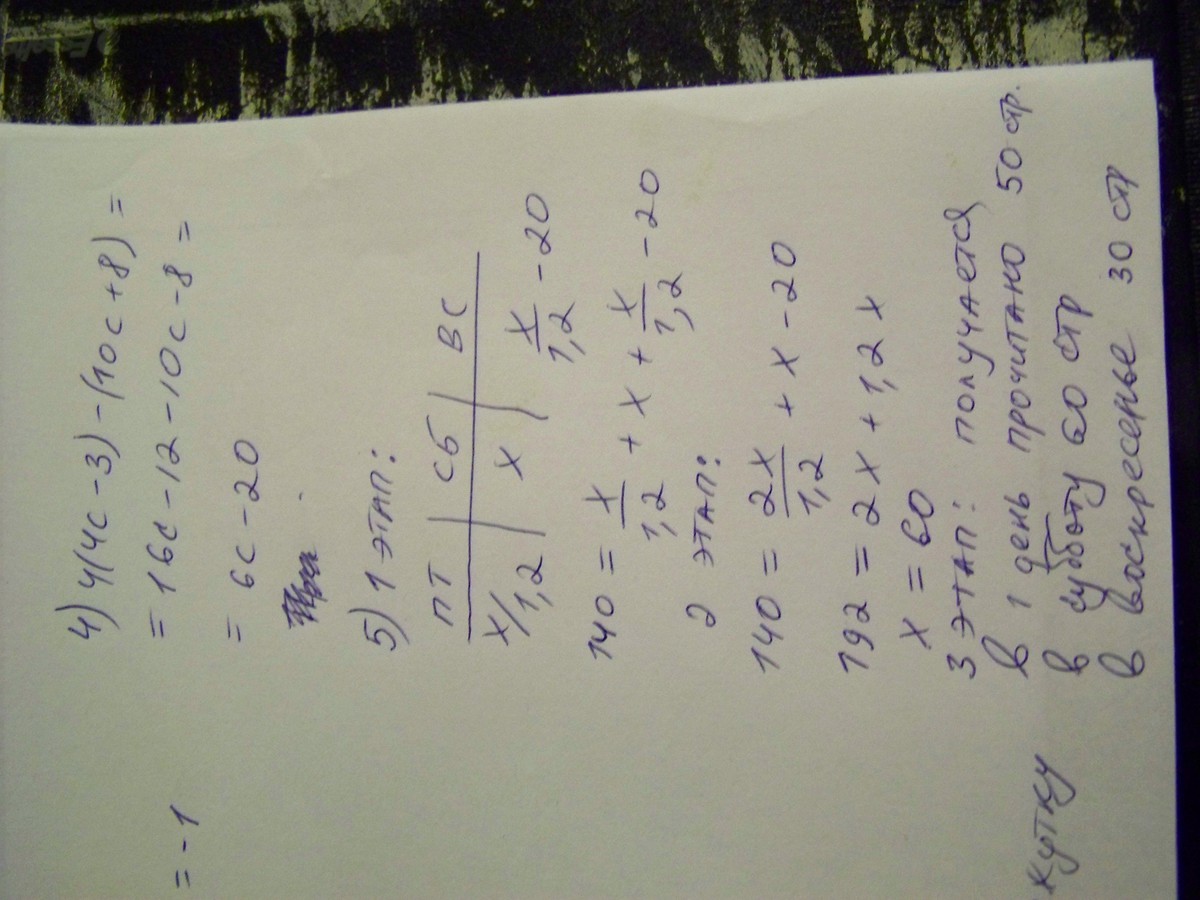 4) 4(4c-3)-(10c+8) =
= 16c-12-10c-8 =
= 6c-20
5) 1 этап:
пт | сб | вс
x/1,2 | x | x/1,2 - 20
140 = x/1,2 + x + x/1,2 - 20
2 этап:
140 = 2x/1,2 + x - 20
192 = 2x + 1,2x
x = 60
3 этап: получается
в 1 день прочитано 50 стр.
в субботу 60 стр
в воскресенье 30 стр
= -1